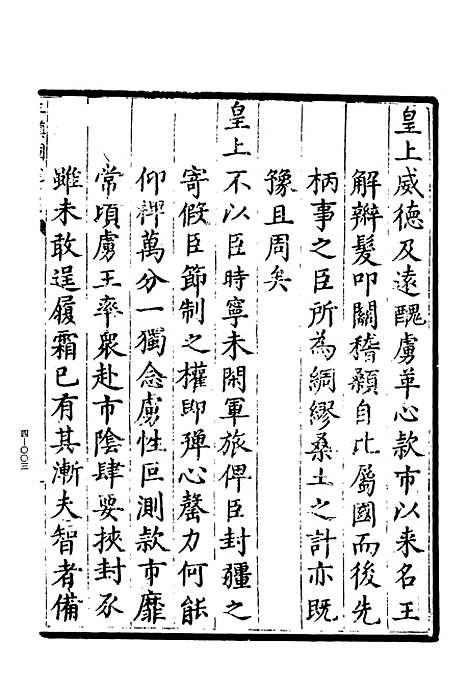 皇上威德及遠醜虜革心款市以来名王
解辮髮叩關稽顙自比屬國而後先
柄事之臣所為綢繆桑土之計亦既
豫且周矣
皇上不以臣時寧未閑軍旅俾臣封疆之
寄假臣節制之權即殫心罄力何能
仰裨萬分一獨念虜性叵測款市靡
常頃虜王率衆赴市陰肆要挾封豕
雖未敢逞履霜已有其漸夫智者備
四-一〇〇三